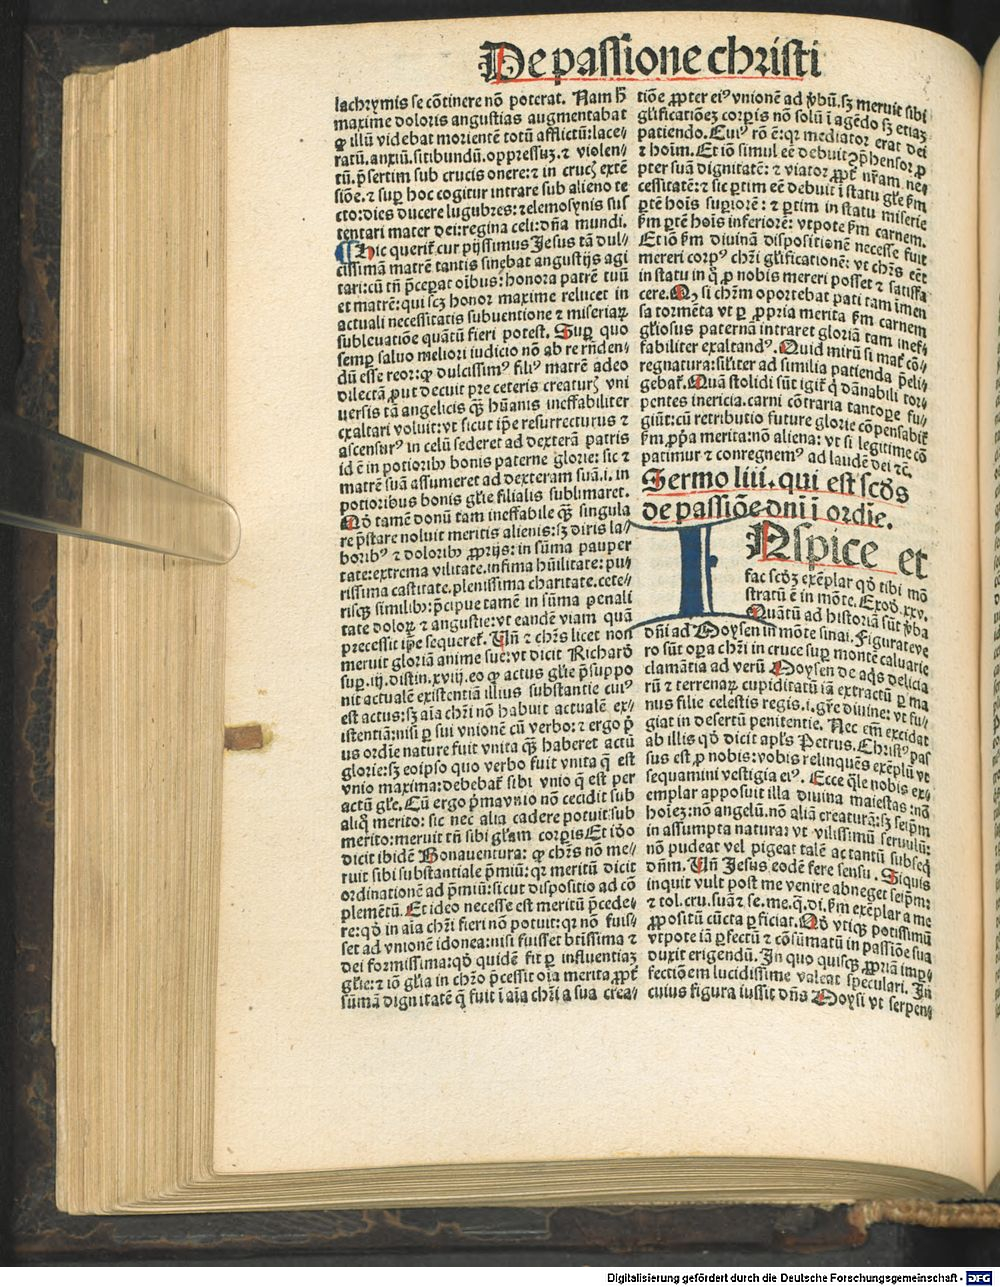 De passione christi
lachrymis se cōtinere nō poterat. Nam h̄
maxime doloris angustias augmentabat
ꝙ illū videbat morientē totū afflictū: lace⸗
ratū. anxiū. sitibundū. oppressuꝫ. ⁊ violen⸗
tū. p̄sertim sub crucis onere: ⁊ in cruc̄ extē
siōe. ⁊ suꝑ hoc cogitur intrare sub alieno te
cto: dies ducere lugubres: ⁊ elemosynis sus
tentari mater dei: regina celi: dn̄a mundi.
¶ Hic querit̄ cur pijssimus Jesus tā dul⸗
cissimā matrē tantis sinebat angustijs agi
tari: cū tn̄ p̄ceꝑat oībus: honora patrē tuū
et matrē: qui scꝫ honor maxime relucet in
actuali necessitatis subuentione ⁊ miseriaꝝ
subleuatiōe quātū fieri potest. Suꝑ quo
semꝑ saluo meliori iudicio nō ab re rn̄den⸗
dū esse reor: ꝙ dulcissimꝰ filiꝰ matrē adeo
dilectā ꝓut decuit pre ceteris creatur̄ vni
uersis tā angelicis qꝫ hūanis ineffabiliter
exaltari voluit: vt sicut ip̄e resurrecturus ⁊
ascensurꝰ in celū sederet ad dexterā patris
id ē in potiorib⁹ bonis paterne glorie: sic ⁊
matrē suā assumeret ad dexteram suā. i. in
potioribus bonis gl̄ie filialis sublimaret.
Qd̄ tamē donū tam ineffabile qꝫ singula
re p̄stare noluit meritis alienis: sꝫ diris la⸗
boribꝰ ⁊ doloribꝰ ꝓprijs: in sūma pauper
tate: extrema vilitate. infima hūilitate: pu⸗
rissima castitate. plenissima charitate. cete⸗
risqꝫ similibꝰ: p̄cipue tamē in sūma penali
tate doloꝝ ⁊ angustie: vt eandē viam quā
precessit ip̄e sequeret̄. Vn̄ ⁊ chr̄s licet non
meruit gloriā anime sue: vt dicit Richard̄
suꝑ. iij. distin. xviij. eo ꝙ actus gl̄ie p̄suppo
nit actualē existentiā illius substantie cuiꝰ
est actus: sꝫ aīa chr̄i nō habuit actualē ex⸗
istentiā: nisi ꝑ sui vnionē cū verbo: ⁊ ergo p̄
us ordīe nature fuit vnita qꝫ haberet actū
glorie: sꝫ eoipso quo verbo fuit vnita q̄ est
vnio maxima: debebat̄ sibi vnio q̄ est per
actū gl̄e. Cū ergo p̄ma vnio nō cecidit sub
aliq̄ merito: sic nec alia cadere potuit sub
merito: meruit tn̄ sibi gl̄am corꝑis Et iđo
dicit ibidē Bonauentura: ꝙ chr̄s nō me⸗
ruit sibi substantiale p̄miū: qr meritū dicit
ordinationē ad p̄miū: sicut dispositio ad cō
plemētū. Et ideo necesse est meritū p̄cede⸗
re: qd̄ in aīa chr̄i fieri nō potuit: qr nō fuis⸗
set ad vnionē idonea: nisi fuisset btīssima ⁊
dei formissima: qd̄ quidē fit ꝑ influentiaꝫ
gl̄ie: ⁊ iō gl̄ia in chr̄o p̄cessit oīa merita ꝓpt̄
sūmā dignitatē q̄ fuit ī aīa chr̄i a sua crea⸗
tiōe ꝓpter eiꝰ vnionē ad v̄bū. sꝫ meruit sibi
gl̄ificatiōeꝫ corꝑis nō solū ī agēdo sꝫ etiaꝫ
patiendo. Cuiꝰ rō ē: qr mediator erat dei
⁊ hoīm. Et iō simul eē debuit ꝯp̄hensor ꝓ
pter suā dignitatē: ⁊ viator ꝓpt̄ nr̄am ne⸗
cessitatē: ⁊ sic ꝑtim eē debuit ī statu gl̄e ẜm
ꝑtē hoīs suꝑiorē: ⁊ ꝑtim in statu miserie
ẜm ꝑtē hoīs inferiorē: vtpote ẜm carnem.
Et iō ẜm diuinā dispositionē necesse fuit
mereri corpꝰ chr̄i gl̄ificationē: vt chr̄s eēt
in statu in q̄ ꝓ nobis mereri posset ⁊ satisfa
cere. Qꝫ si chr̄m oportebat pati tam īmen
sa tormēta vt ꝑ ꝓpria merita ẜm carnem
gl̄iosus paternā intraret gloriā tam inef⸗
fabiliter exaltandꝰ. Quid mirū si mat̄ cō⸗
regnatura: silīter ad similia patienda p̄eli⸗
gebat̄. Quā stolidi sūt igit̄ q̄ dānabili tor⸗
pentes inericia. carni cōtraria tantoꝑe fu⸗
giūt: cū retributio future glorie cōpensabit̄
ẜm ꝓp̄a merita: nō aliena: vt si legitime cō
patimur ⁊ conregnemꝰ ad laudē dei ⁊c̄.
Sermo liii. qui est scđs
de passiōe dn̄i ī ordīe.
INspice et
fac scđꝫ exēplar qd̄ tibi mō
stratū ē in mōte. Exođ. xxv.
Quātū ad historiā sūt v̄ba
dn̄i ad Moysen in mōte sinai. Figurateve
ro sūt oꝑa chr̄i in cruce suꝑ montē caluarie
clamātia ad verū Moysen de aq̄s delicia
rū ⁊ terrenaꝝ cupiditatū iā extractū ꝑ ma
nus filie celestis regis. i. gr̄e diuine: vt fu⸗
giat in desertū penitentie. Nec em̄ excidat
ab illis qd̄ dicit apl̄s Petrus. Christꝰ pas
sus est ꝓ nobis: vobis relinquēs exēplū vt
sequamini vestigia eiꝰ. Ecce q̄le nobis ex⸗
emplar apposuit illa diuina maiestas: nō
hoīeꝫ: nō angelū. nō aliā creaturā: sꝫ seip̄m
in assumpta natura: vt vilissimū seruulū:
nō pudeat vel pigeat talē ac tantū subseq̄
dn̄m. Vn̄ Jesus eodē fere sensu. Siquis
inquit vult post me venire abneget seip̄m:
⁊ tol. cru. suā ⁊ se. me. q. di. ẜm exēplar a me
ꝓpositū cūcta ꝑficiat. Qd̄ vtiqꝫ potissimū
vtpote iā ꝑfectū ⁊ cōsūmatū in passiōe sua
duxit erigendū. In quo quisqꝫ ꝓpriā impꝰ
fectiōem lucidissime valeat speculari. In
cuius figura iussit dn̄s Moysi vt serpen⸗
Digitalisierung gefördert durch die Deutsche Forschungsgemeinschaft - DFG